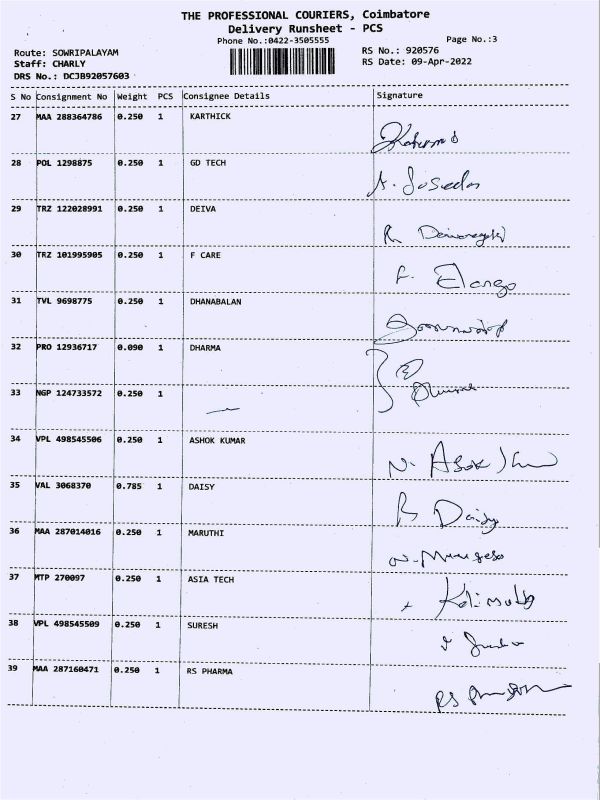 THE PROFESSIONAL COURIERS, Coimbatore
Delivery Runsheet - PCS
Phone No.:0422-3505555
Page No.:3
Route: SOWRIPALAYAM
RS No.: 920576
Staff: CHARLY
RS Date: 09-Apr-2022
DRS No.: DCJB92057603
S No Consignment No Weight PCS Consignee Details Signature
27 MAA 288364786 0.250 1 KARTHICK
28 POL 1298875 0.250 1 GD TECH
29 TRZ 122028991 0.250 1 DEIVA
30 TRZ 101995905 0.250 1 F CARE
F. Elango
31 TVL 9698775 0.250 1 DHANABALAN
32 PRO 12936717 0.090 1 DHARMA
33 NGP 124733572 0.250 1
34 VPL 498545506 0.250 1 ASHOK KUMAR
N. Ashok
35 VAL 3068370 0.785 1 DAISY
Daisy
36 MAA 287014016 0.250 1 MARUTHI
37 MTP 270097 0.250 1 ASIA TECH
38 VPL 498545509 0.250 1 SURESH
39 MAA 287160471 0.250 1 RS PHARMA
RS